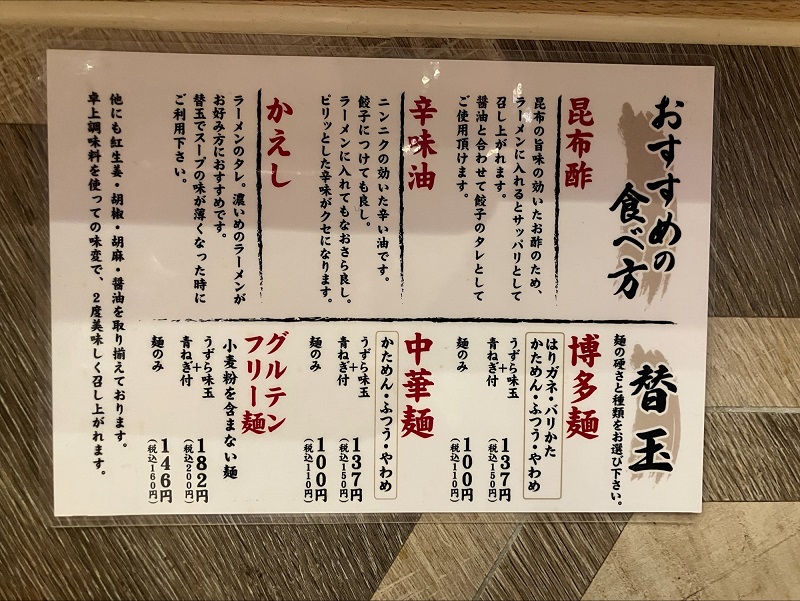 おすすめの
食べ方
昆布酢
昆布の旨味の効いたお酢のため、
ラーメンに入れるとサッパリとして
召し上がれます。
醤油と合わせて餃子のタレとして
ご使用頂けます。
辛味油
ニンニクの効いた辛い油です。
餃子につけても良し。
ラーメンに入れてもなおさら良し。
ピリッとした辛味がクセになります。
かえし
ラーメンのタレ。濃いめのラーメンが
お好み方におすすめです。
替玉でスープの味が薄くなった時に
ご利用下さい。
他にも紅生姜・胡椒・胡麻・醤油を取り揃えております。
卓上調味料を使っての味変で、２度美味しく召し上がれます。
替玉
麺の硬さと種類をお選び下さい。
博多麺
はりガネ・バリかた
かためん・ふつう・やわめ
うずら味玉
+
青ねぎ付
137円
(税込150円)
麺のみ
100円
(税込110円)
中華麺
かためん・ふつう・やわめ
うずら味玉
+
青ねぎ付
137円
(税込150円)
麺のみ
100円
(税込110円)
グルテン
フリー麺
小麦粉を含まない麺
うずら味玉
+
青ねぎ付
182円
(税込200円)
麺のみ
146円
(税込160円)